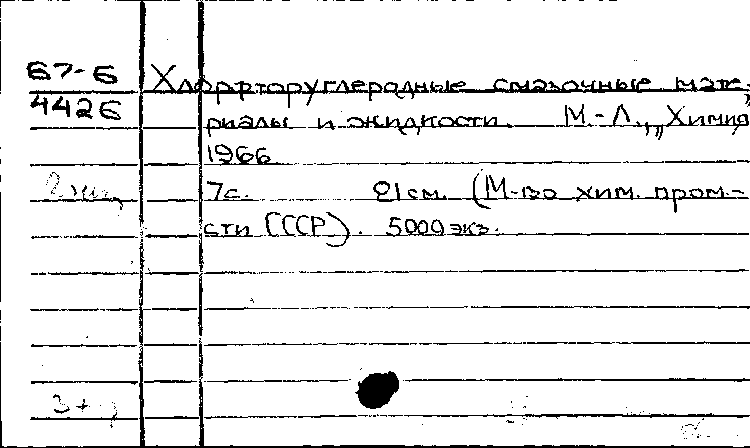 67-6
4426
Хлорфторуглеродные смазочные мате-
риалы и жидкости. М.-Л., „Химия"
1966
7с. 21 см. (М-во хим. пром-
сти СССР). 5000 экз.